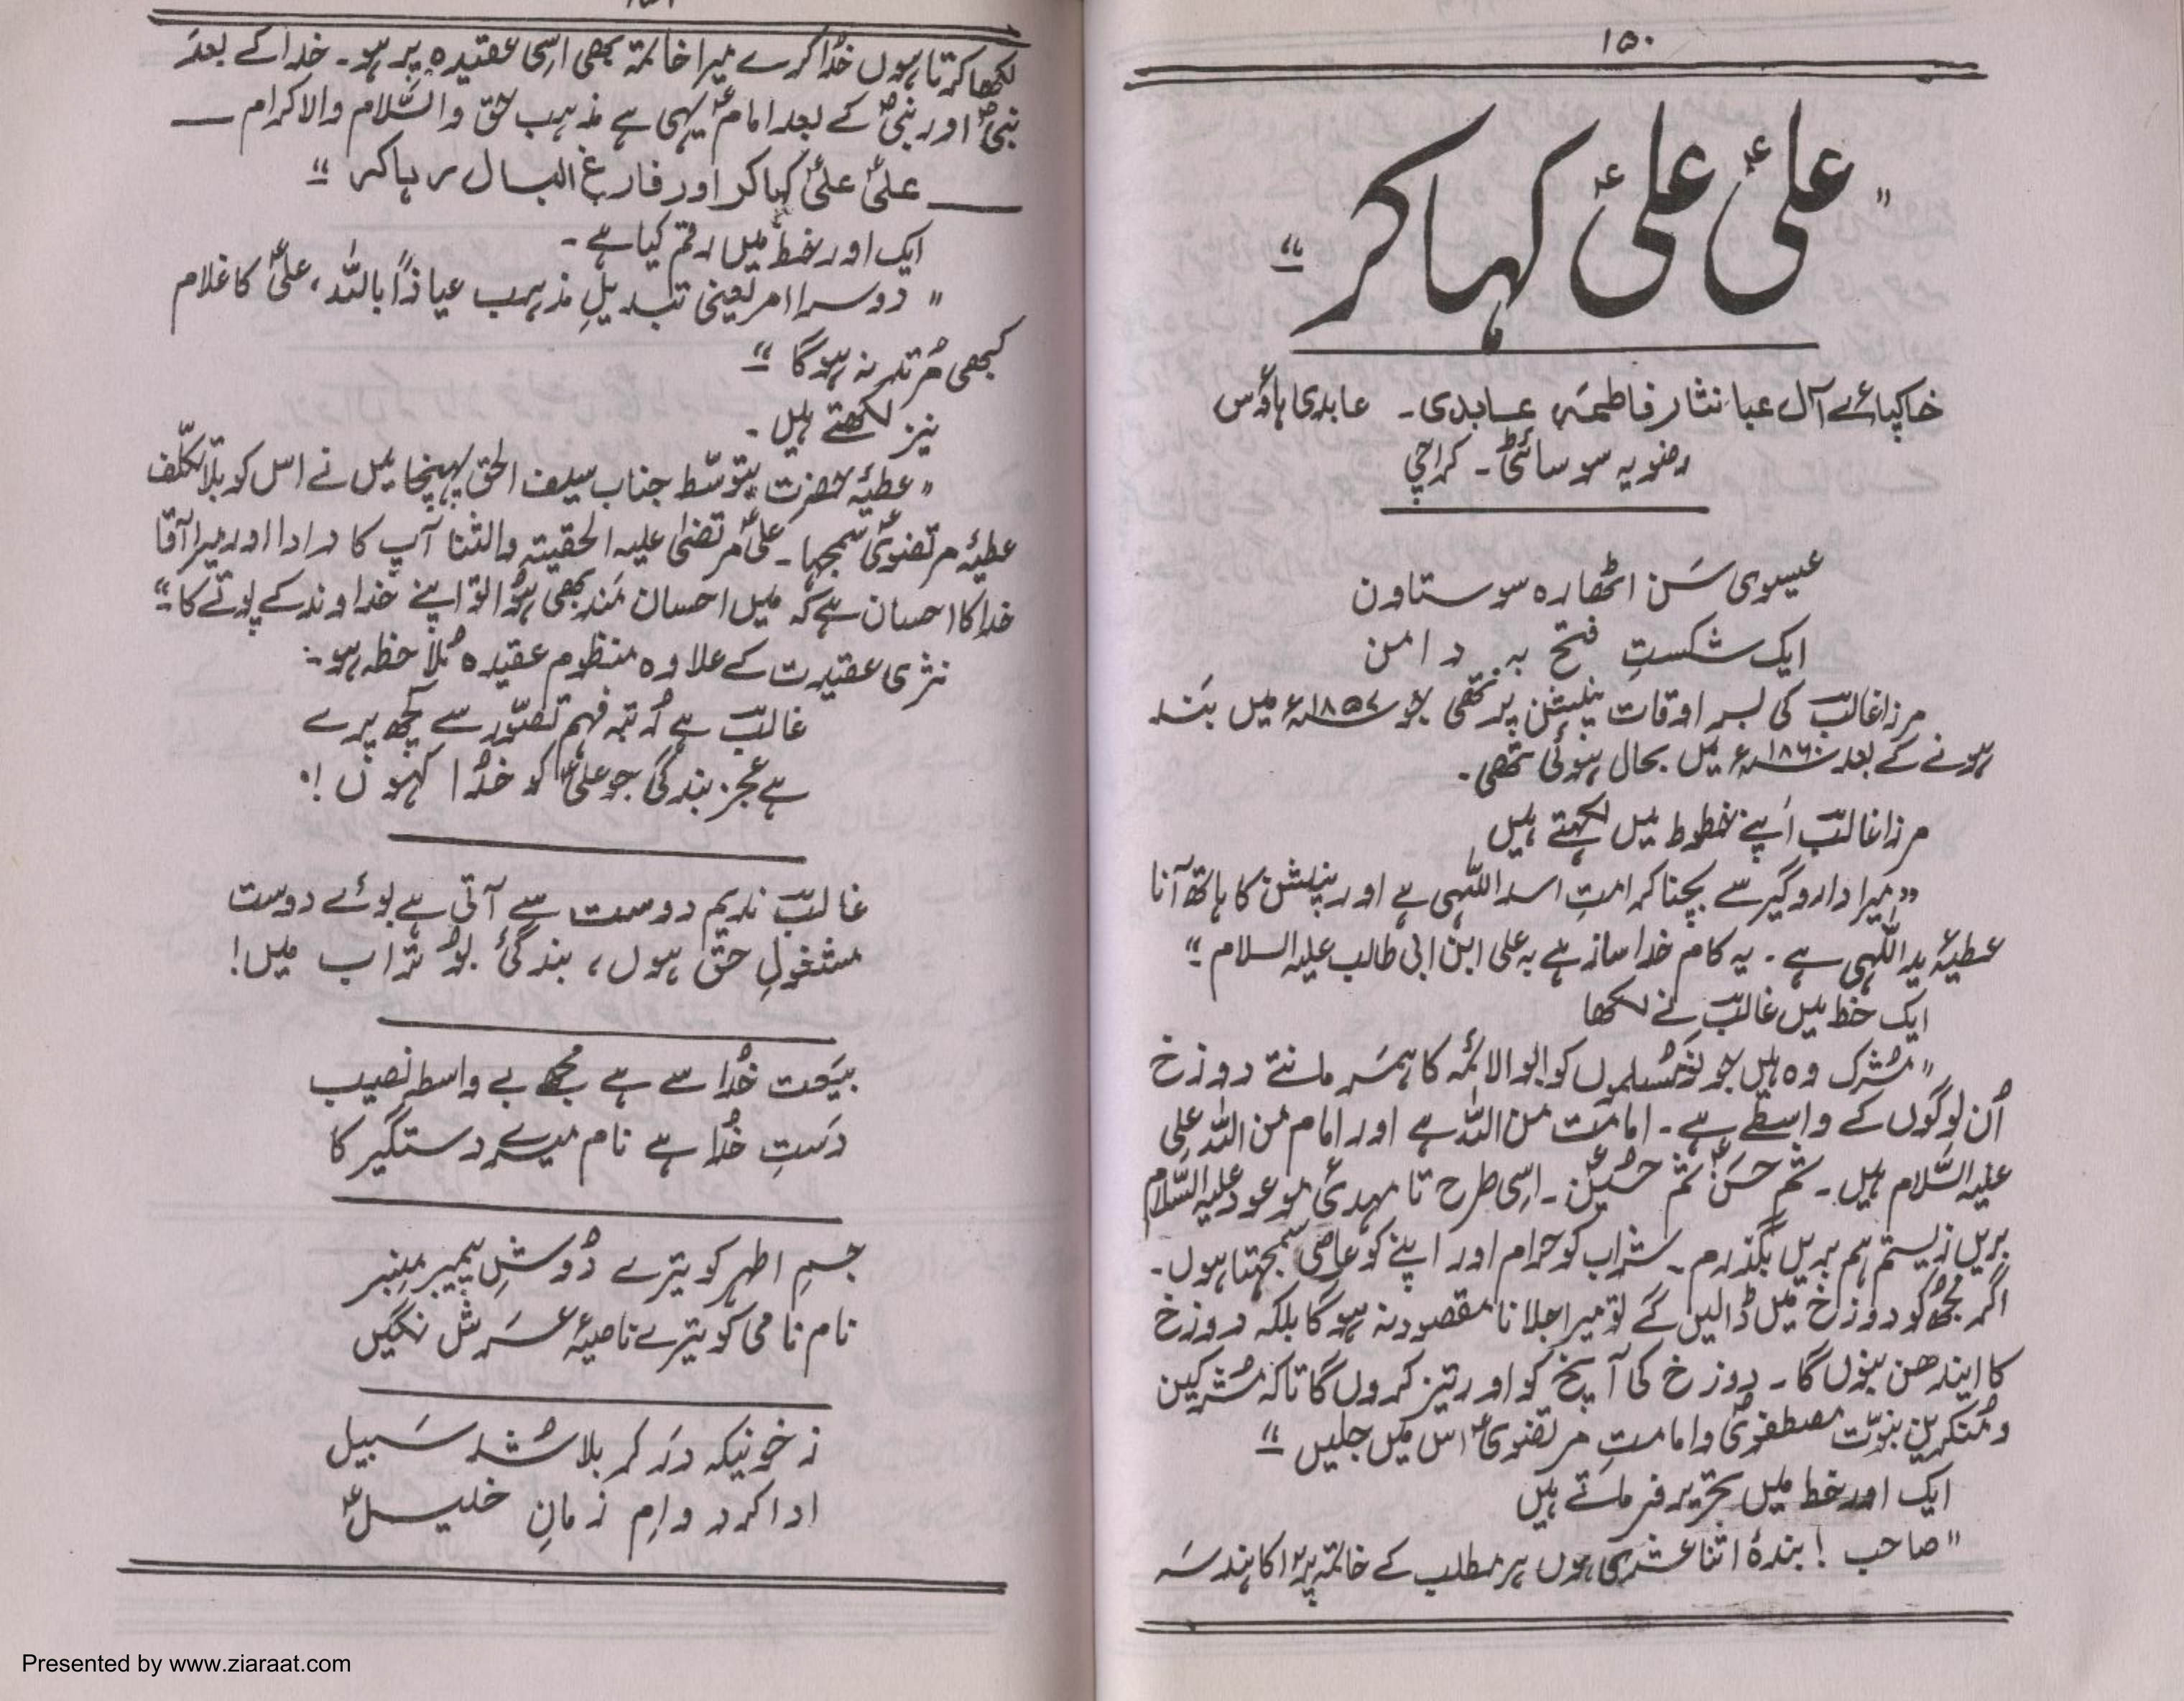 ۱۵۰
"علیؑ علیؑ کہا کر"
خاکپائے آل عبا نثار فاطمہ عابدی۔ عابدی ہاؤس
رضویہ سوسائٹی۔ کراچی
عیسوی سَن اٹھارہ سو ستاون
ایک شکستِ فتح بہ دامن
مرزا غالبؔ کی بسر اوقات پنیشن پر تھی جو ۱۸۵۷ء میں بند
ہونے کے بعد ۱۸۶۰ء میں بحال ہوئی تھی۔
مرزا غالبؔ اپنے خطوط میں لکہتے ہیں
"میرا دارو گیر سے بچنا کرامتِ اسد اللّٰہی ہے اور پنیشن کا ہاتھ آنا
عطیۂ ید اللّٰہی ہے۔ یہ کام خدا ساز ہے بہ علی ابن ابی طالب علیہ السلام"
ایک خط میں غالبؔ نے لکھا
"مُشرک وہ ہیں جو نَو مُسلموں کو ابوالائمہ کا ہمسَر مانتے دوزخ
اُن لوگوں کے واسطے ہے۔ امامَت من اللّٰہ ہے اور امام من اللّٰہ علی
علیہ السَّلام ہیں۔ ثم حسَنؑ ثم حُسینؑ۔ اِسی طرح تا مہدیٔ موعود علیہ السَّلام
بریں زیستم ہم بریں بگذرم۔ شراب کو حرام اور اپنے کو عاصی سمجہتا ہوں۔
اگر مجُھ کو دوزخ میں ڈالیں گے تو میرا جلانا مقصود نہ ہوگا بلکہ دوزخ
کا ایندھن بنوں گا۔ دوزخ کی آنچ کو اور تیز کروں گا تاکہ مُشرکین
و مُنکرین نبوّت مصطفویؐ و امامتِ مرتضویؑ اس میں جلیں"
ایک اور خط میں تحریر فرماتے ہیں
"صاحب! بندۂ اثنا عشری ہوں ہر مطلب کے خاتمہ پر ۱۲ کا ہندسَہ
لکھا کرتا ہوں خُدا کرے میرا خاتمہ بھی اسِی عقیدہ پر ہو۔ خدا کے بعد
نبیؐ اور نبیؐ کے بعد امامؑ یہی ہے مذہب حق والسَّلام والاکرام ــــ
ــــ علیؑ علیؑ کہا کر اور فارغ البال رہا کر"
ایک اور خط میں رقم کیا ہے۔
"دوسرا امر یعنی تبدیلِ مذہب عیاذاً باللّٰہ، علیؑ کا غلام
کبھی مُرتد نہ ہوگا"
نیز لکھتے ہیں۔
"عطیۂ حضرت بتوسّط جناب سیف الحق پہنچا میں نے اس کو بلاتکلّف
عطیۂ مرتضویؑ سمجہا۔ علیؑ مرتضیٰ علیہ الحقیتہ والثنا آپ کا دادا اور میرا آقا
خدا کا احسان ہے کہ میں احسان مَند بھی ہُوا تو اپنے خداوند کے پوتے کا"
نثری عقیدت کے علاوہ منظوم عقیدہ مُلاحظہ ہو۔
غالبؔ ہے رُتبہ فہم تصَوّر سے کچھ پرے
ہے عجز بندگی جو علیؑ کو خُدا کہوں!
غالبؔ ندیم دوست سے آتی ہے بوئے دوست
مشغولِ حق ہوں، بندگیٔ بوُ تراب میں!
بیَعت خُدا سے ہے مجُھ بے واسطہ نصیب
دَستِ خُدا ہے نام میرے دستگیر کا
جسمِ اطہر کو تیرے دُوشِ پیمبر مِنبر
نام نامی کو تیرے ناصیۂ عرش نگیں
ز خونیکہ دَر کربلا شُد سبیل
ادا کرد وامِ زمانِ خلیلؑ
Presented by www.ziaraat.com